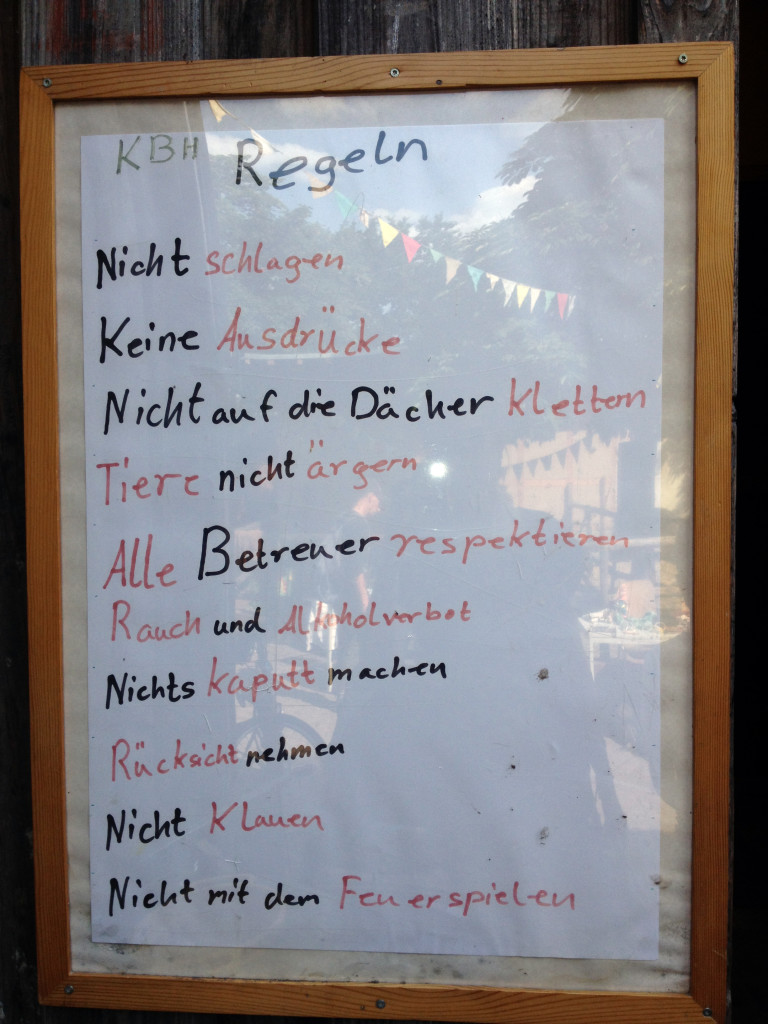 KBH Regeln
Nicht schlagen
Keine Ausdrücke
Nicht auf die Dächer klettern
Tiere nicht ärgern
Alle Betreuer respektieren
Rauch und Alkoholverbot
Nichts kaputt machen
Rücksicht nehmen
Nicht Klauen
Nicht mit dem Feuer spielen